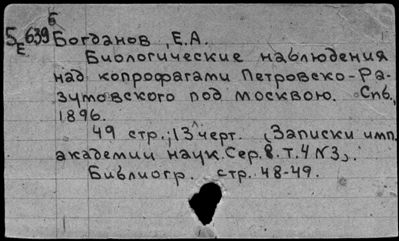 5639 б Богданов, Е.А.
Е
Биологические наблюдения
над копрофагами Петровско-Ра-
зумовского под москвою. Спб.,
1896.
49 стр.; 13 черт. (Записки имп.
академии наук. Сер. 8. Т. 4 №3).
Библиогр. стр. 48-49.